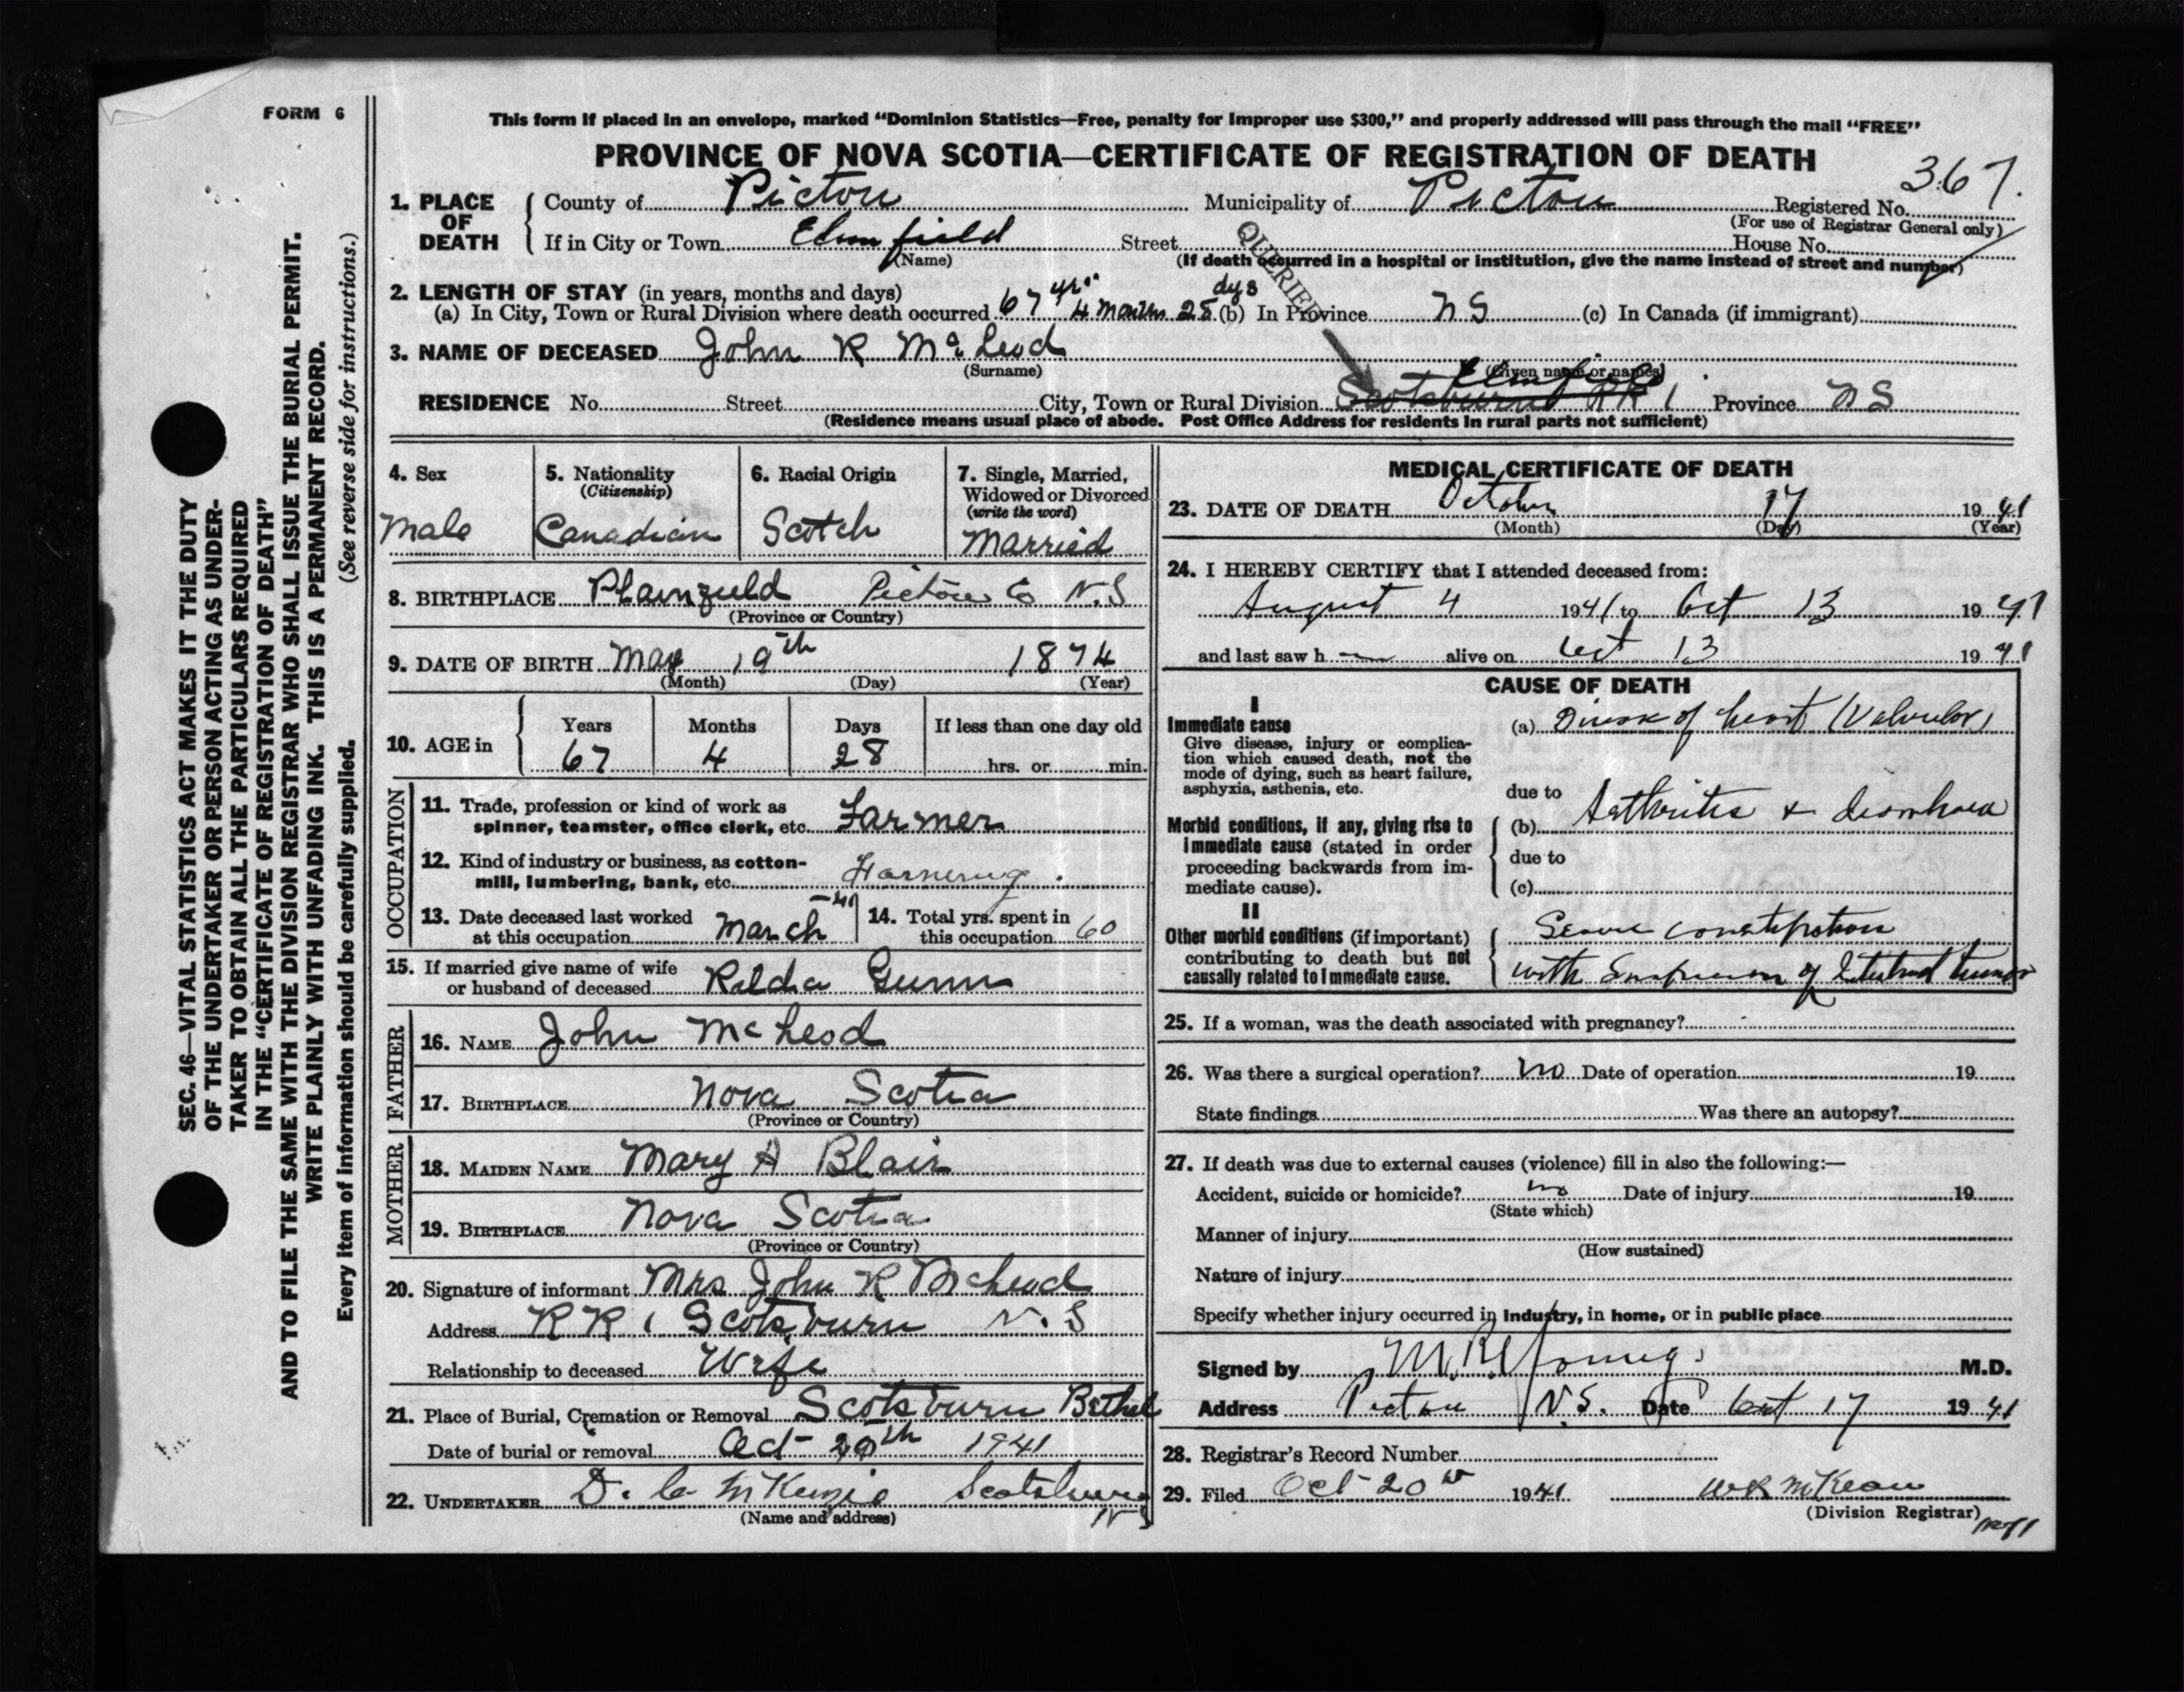 FORM 6
This form if placed in an envelope, marked “Dominion Statistics—Free, penalty for Improper use $300,” and properly addressed will pass through the mail “FREE”
PROVINCE OF NOVA SCOTIA—CERTIFICATE OF REGISTRATION OF DEATH
367.
1. PLACE OF DEATH County of Pictou Municipality of Pictou Registered No.
(For use of Registrar General only)
If in City or Town Elmfield Street House No.
(Name) (If death occurred in a hospital or institution, give the name instead of street and number)
QUERIED
2. LENGTH OF STAY (in years, months and days)
(a) In City, Town or Rural Division where death occurred 67 yrs 4 months 28 dys (b) In Province NS (c) In Canada (if immigrant)
3. NAME OF DECEASED John R McLeod
(Surname) (Given name or names)
Elmfield
RESIDENCE No. Street City, Town or Rural Division Scotsburn RR 1 Province NS
(Residence means usual place of abode. Post Office Address for residents in rural parts not sufficient)
4. Sex Male
5. Nationality (Citizenship) Canadian
6. Racial Origin Scotch
7. Single, Married, Widowed or Divorced (write the word) Married
8. BIRTHPLACE Plainfield Pictou Co N.S
(Province or Country)
9. DATE OF BIRTH May 19th 1874
(Month) (Day) (Year)
10. AGE in Years Months Days If less than one day old
67 4 28 hrs. or min.
OCCUPATION
11. Trade, profession or kind of work as spinner, teamster, office clerk, etc. Farmer
12. Kind of industry or business, as cotton-mill, lumbering, bank, etc. Farming.
13. Date deceased last worked at this occupation March -41
14. Total yrs. spent in this occupation 60
15. If married give name of wife or husband of deceased Raldia Gunn
FATHER
16. NAME John McLeod
17. BIRTHPLACE Nova Scotia
(Province or Country)
MOTHER
18. MAIDEN NAME Mary A Blair
19. BIRTHPLACE Nova Scotia
(Province or Country)
20. Signature of informant Mrs John R McLeod
Address RR 1 Scotsburn N.S
Relationship to deceased Wife
21. Place of Burial, Cremation or Removal Scotsburn Bethel
Date of burial or removal Oct 20th 1941
22. UNDERTAKER D. C McKenzie Scotsburn NS
(Name and address)
MEDICAL CERTIFICATE OF DEATH
23. DATE OF DEATH October 17 1941
(Month) (Day) (Year)
24. I HEREBY CERTIFY that I attended deceased from:
August 4 1941 to Oct 13 1941
and last saw h alive on Oct 13 1941
CAUSE OF DEATH
I
Immediate cause
Give disease, injury or complication which caused death, not the mode of dying, such as heart failure, asphyxia, asthenia, etc.
(a) Disease of heart (Valvular)
due to
Morbid conditions, if any, giving rise to immediate cause (stated in order proceeding backwards from immediate cause).
(b) Arthritis + diarrhoea
due to
(c)
II
Other morbid conditions (if important) contributing to death but not causally related to immediate cause.
Severe constipation
with Suspicion of Intestinal tumor
25. If a woman, was the death associated with pregnancy?
26. Was there a surgical operation? no Date of operation 19
State findings Was there an autopsy?
27. If death was due to external causes (violence) fill in also the following:—
Accident, suicide or homicide? no Date of injury 19
(State which)
Manner of injury
(How sustained)
Nature of injury
Specify whether injury occurred in Industry, in home, or in public place
Signed by M. R. Young. M.D.
Address Pictou N.S. Date Oct 17 1941
28. Registrar's Record Number
29. Filed Oct 20 1941 WR McKean
(Division Registrar)
SEC. 46—VITAL STATISTICS ACT MAKES IT THE DUTY
OF THE UNDERTAKER OR PERSON ACTING AS UNDER-
TAKER TO OBTAIN ALL THE PARTICULARS REQUIRED
IN THE “CERTIFICATE OF REGISTRATION OF DEATH”
AND TO FILE THE SAME WITH THE DIVISION REGISTRAR WHO SHALL ISSUE THE BURIAL PERMIT.
WRITE PLAINLY WITH UNFADING INK. THIS IS A PERMANENT RECORD.
Every item of information should be carefully supplied. (See reverse side for instructions.)